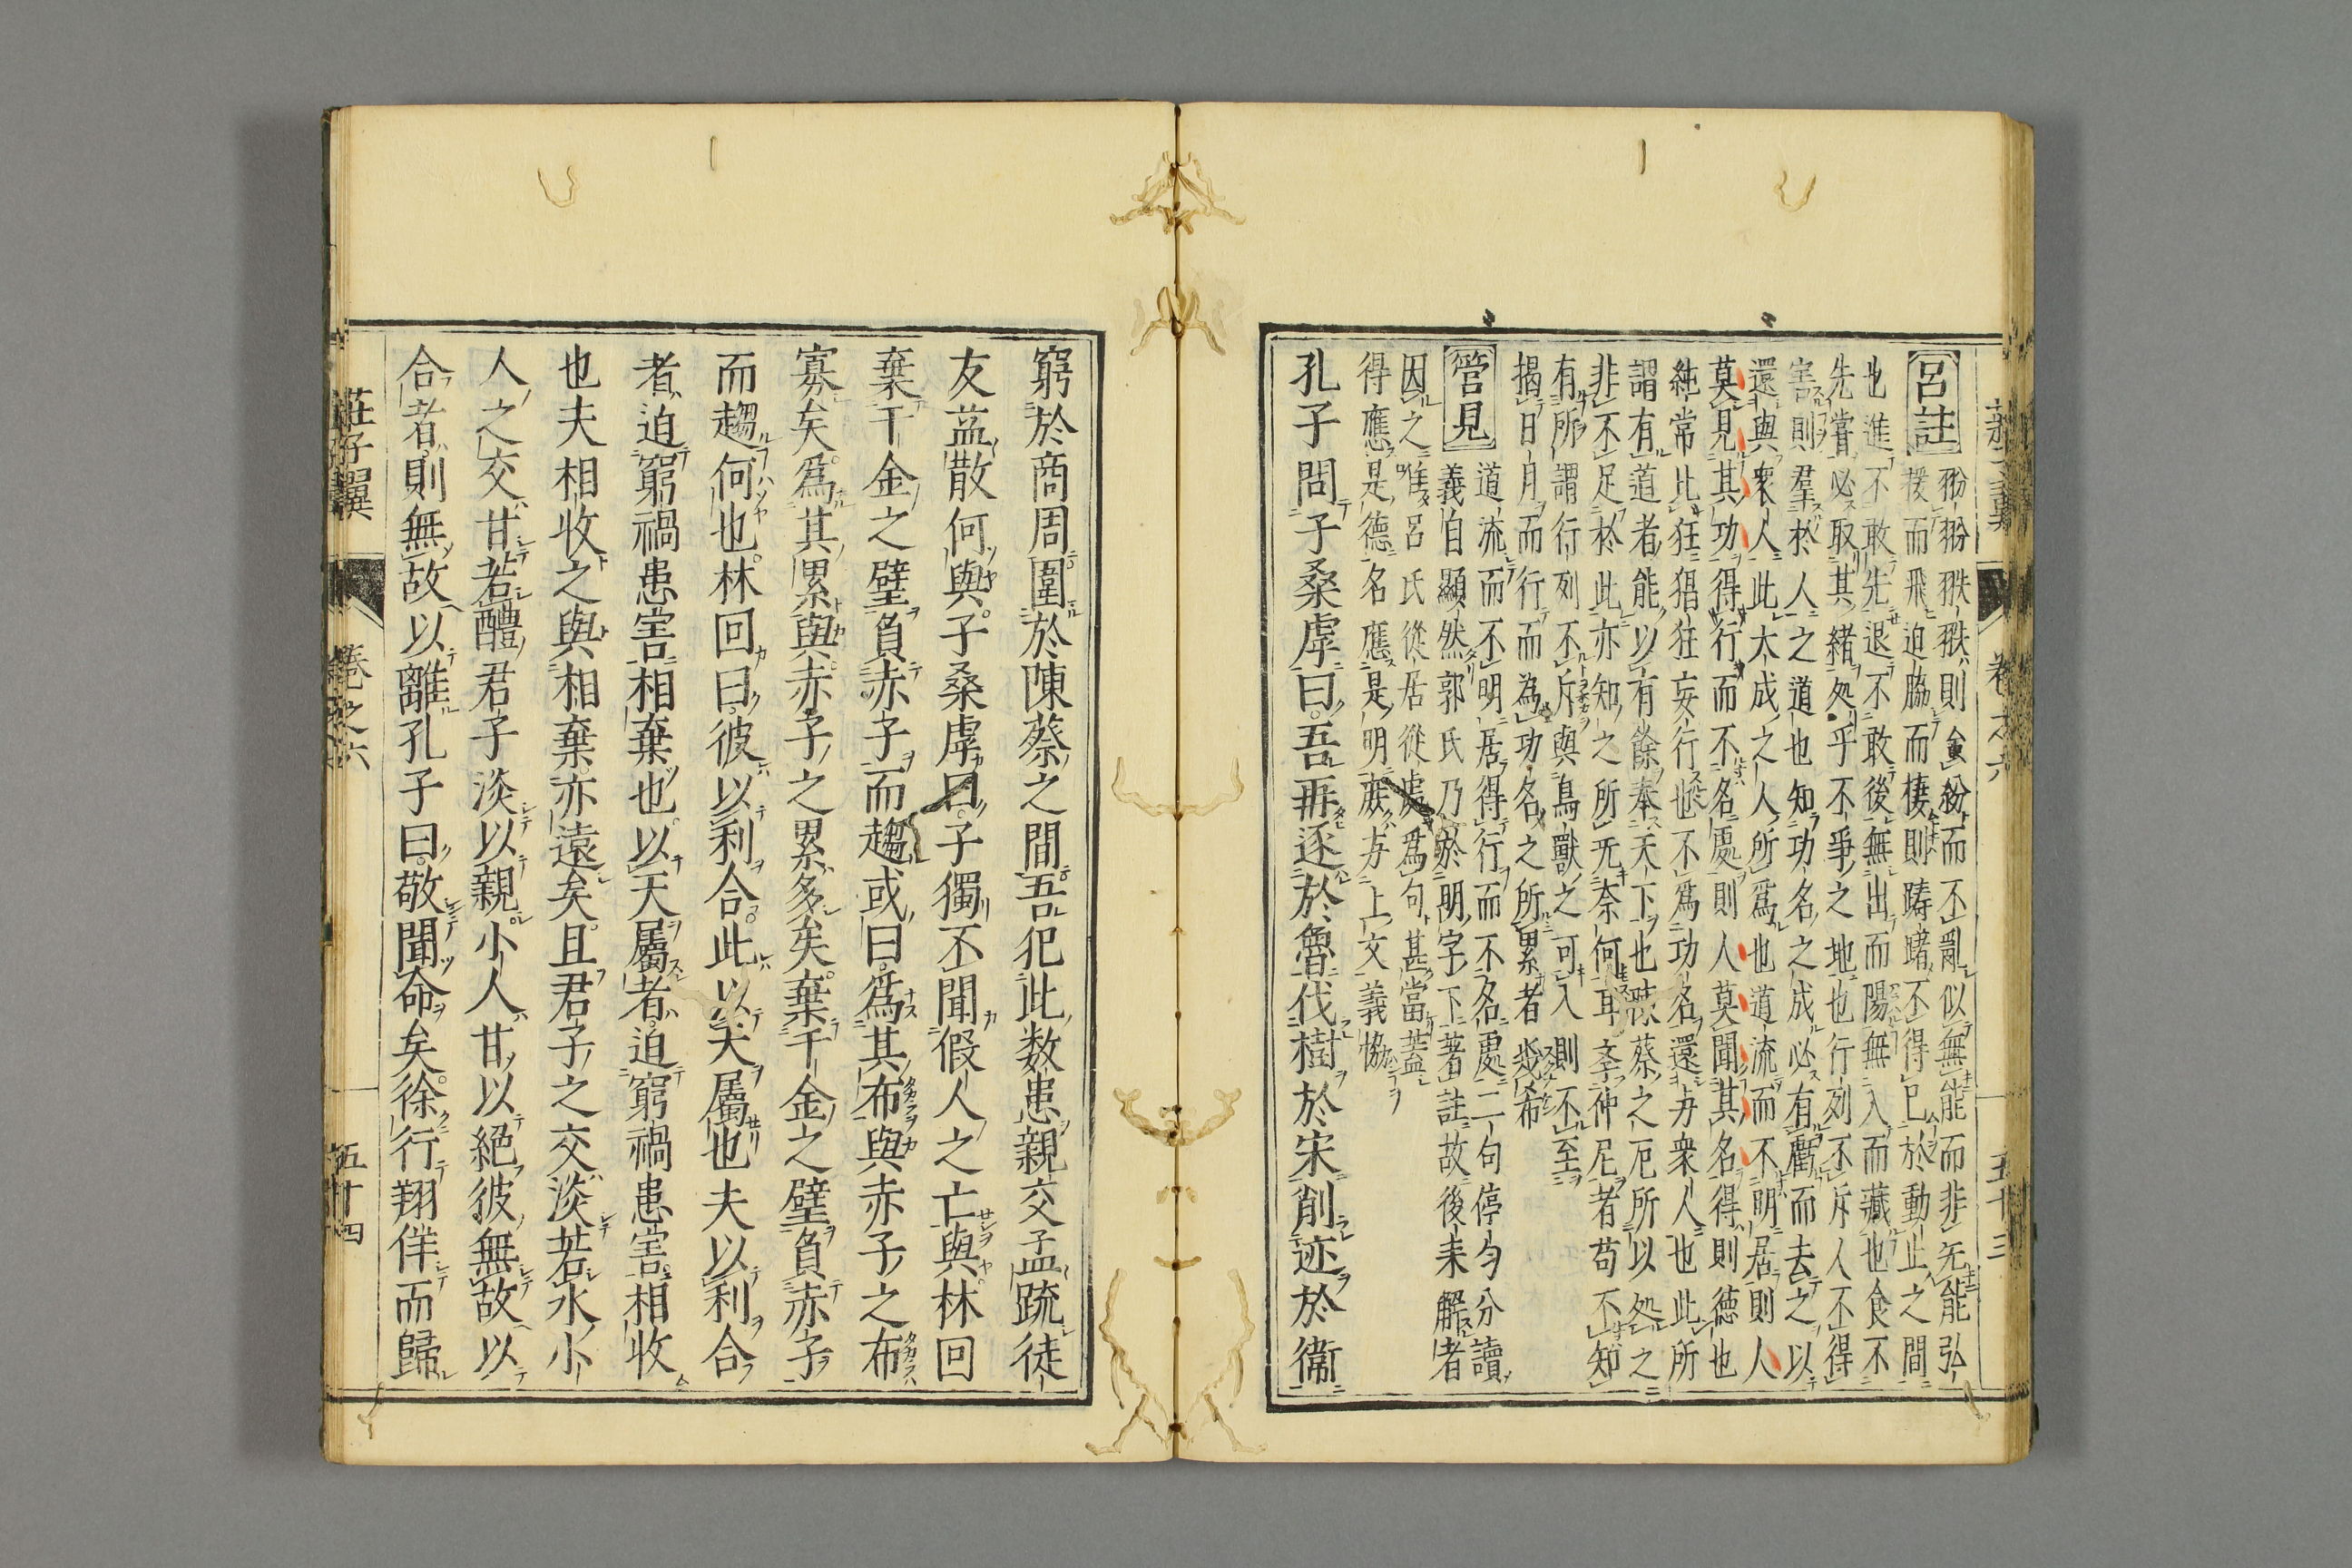 莊子翼
卷之六
五十三
呂註
翂翂翐翐則雖紛而不亂似無能而非无能弘
援而飛迫脇而棲則躊躇不得已於動止之間
也進不敢先退不敢後無出而陽無入而藏也食不
先嘗必取其緒処乎不爭之地也行列不斥人不得
害則羣於人之道也知功名之成必有虧而去之以
還與衆人此大成之人所爲也道流而不明居則人
莫見其功得行而不名處則人莫聞其名得則德也
純常比狂猖狂妄行也不爲功名還与衆人也此所
謂有道者能以有餘奉天下也陳蔡之厄所以処之
非不足於此亦知之所无奈何耳李仲尼者苟不知
有所謂行列不斥與鳥獸之可入則不至
揭日月而行而為功名之所累者幾希
管見
道流而不明居得行而不名處二句停勻分讀
義自顯然郭氏乃於明字下著註故後来解者
因之唯呂氏從居從處爲句甚當蓋
得應是德名應是明庶方上文義協
孔子問子桑虖曰吾再逐於魯伐樹於宋削迹於衞
窮於商周圍於陳蔡之間吾犯此数患親交益疏徒
友益散何與子桑虖曰子獨不聞假人之亡與林回
棄千金之璧負赤子而趨或曰爲其布與赤子之布
寡矣爲其累與赤子之累多矣棄千金之璧負赤子
而趨何也林回曰彼以利合此以天屬也夫以利合
者迫窮禍患害相棄也以天屬者迫窮禍患害相收
也夫相收之與相棄亦遠矣且君子之交淡若水小
人之交甘若醴君子淡以親小人甘以絕彼無故以
合者則無故以離孔子曰敬聞命矣徐行翔佯而歸
莊子翼
卷之六
五十四